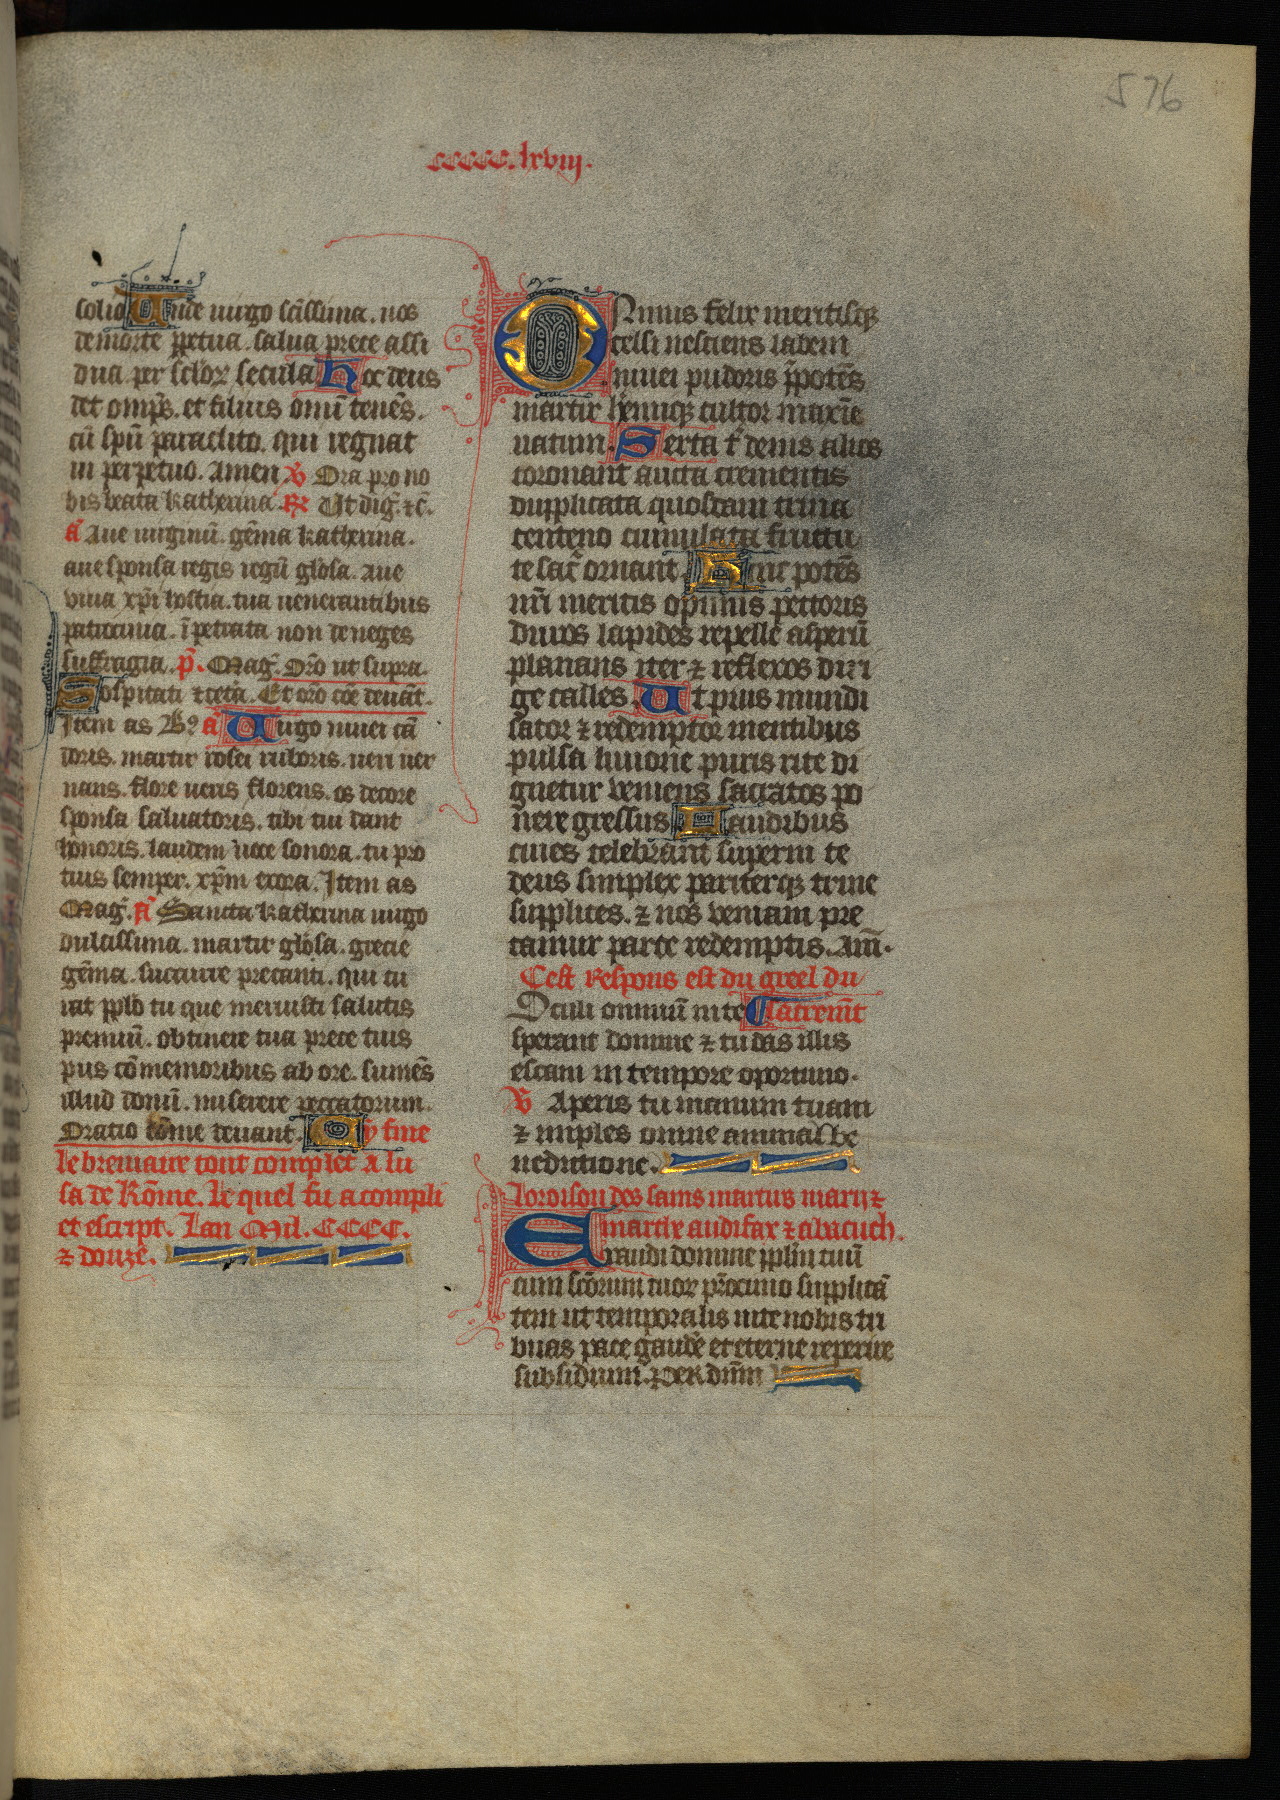 576
ccccc.lxviij.
solio Unde uirgo sc̃issima. nos
de morte ꝑpetua. salua prece assi
dua. per sclõꝝ secula Hoc deus
det omp̃s. et filius om̃i tenẽs.
cũ spũ paraclito. qui regnat
in perpetuo. Amen ℣ Ora pro no
bis beata katherina ℟ Ut dig̃. ⁊c̃.
ã Aue uirginũ. gẽma katherina.
aue sponsa regis regũ gl̃osa. Aue
viua xp̃i hostia. tua uenerantibus
patrocinia. ĩpetrata non deneges
suffragia. p̃. Mag̃. Or̃o ut supra.
Sospitati ⁊ cetã. Et or̃o cõe deuãt.
Item as Bꝰ ã Uirgo niuei cã
doris. martir rosei ruboris. ueri uer
nans. flore ueris florens. os decore
sponsa saluatoris. tibi tui dant
honoris. laudem uoce sonora. tu pro
tuis semper. xp̃m exora. Item as
Mag̃. ã Sancta katherina uirgo
dulcissima. martir gl̃osa. grecie
gẽma. succurre precanti. qui tu
rat pplo tu que meruisti salutis
premiũ. obtinere tua prece tuis
pus cõmemoribus ab ore. sumẽs
illud donũ. miserere peccatorum.
Oratio cõme deuant. Cy fine
le breuiaire tout complet a lu
sa de Rõme. le quel fu acompli
et escript. Lan Mil. CCCC.
⁊ douze.
Ominus felix meritisqꝫ
celsi nesciens labem
niuei pudoris p̃potẽs
martir heniuqꝫ cultor maxĩe
uatum. Serta t̃ denis alios
coronant aucta crementis
duplicata quosdam trina
centeno cumulata fructu
te sac̃ ornant Hinc potẽs
nr̃i meritis opimis pectoris
duros lapides repelle asperũ
planans iter ⁊ reflexos diri
ge calles Ut pius mundi
sator ⁊ redemptor mentibus
pulsa liuione puris rite di
gnetur veniens sacratos po
nere gressus Laudibus
ciues celebrant superni te
deus simplex pariterqꝫ trine
supplices. ⁊ nos veniam pre
camur parce redemptis. Am̃.
Cest Respons est du greel du
Oculi omniũ in te C sacremẽt
sperant domine ⁊ tu das illis
escam in tempore oportuno.
℣ Aperis tu manum tuam
⁊ imples omne animal be
nedictione.
Loroison des sains martirs marij ⁊
martre audifax ⁊ abacuch.
Exaudi domine pplm tuũ
cum scõrum tuoꝝ pr̃ocinio supplicã
tem ut temporalis uite nobis tri
buas pace gaude et eterne reperire
subsidium. Per dñm